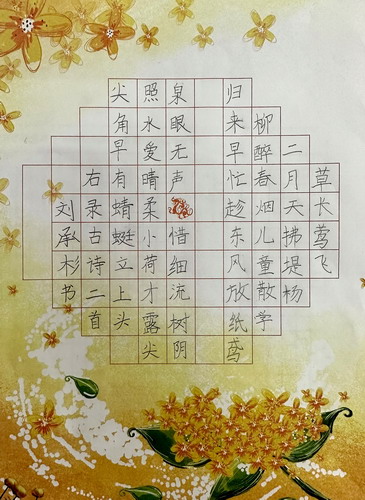 草长莺飞
二月天拂堤杨
柳醉春烟儿童散学
归来早忙趁东风放纸鸢
泉眼无声惜细流树阴
照水爱晴柔小荷才露尖
尖角早有蜻蜓立上头
右录古诗二首
刘承杉书